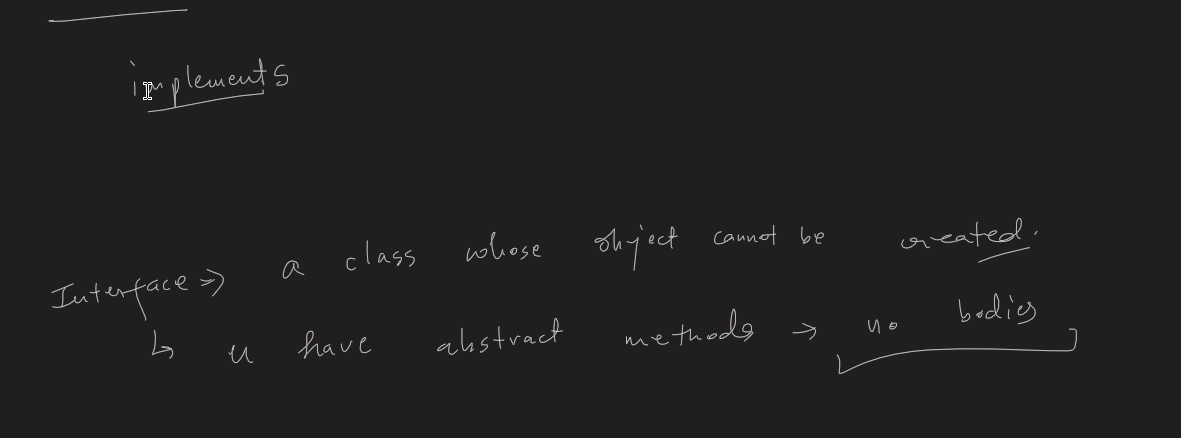 implements
Interface => a class whose object cannot be created.
↳ u have abstract methods → no bodies